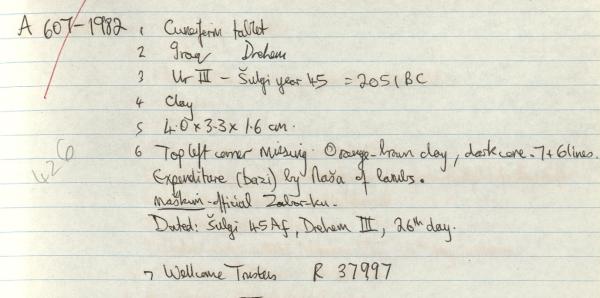 A 607-1982 1 Cuneiform tablet
2 Iraq Drehem
3 Ur III - Šulgi year 45 = 2051 BC
4 Clay
5 4.0 x 3.3 x 1.6 cm.
6 Top left corner missing. Orange-brown clay, dark core. 7+6 lines.
426
Expenditure (bazi) by Naša of lambs.
Maškim-official Zabar-ku.
Dated: Šulgi 45Af, Drehem III, 26th day.
7 Wellcome Trustees R 37997